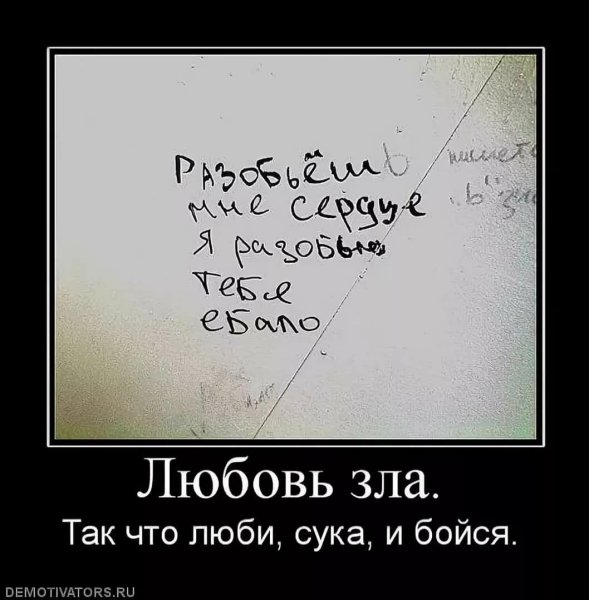 Разобьёшь
мне сердце
я разобью
тебе
ебало
пишетс
"ь" зн
Любовь зла.
Так что люби, сука, и бойся.
DEMOTIVATORS.RU